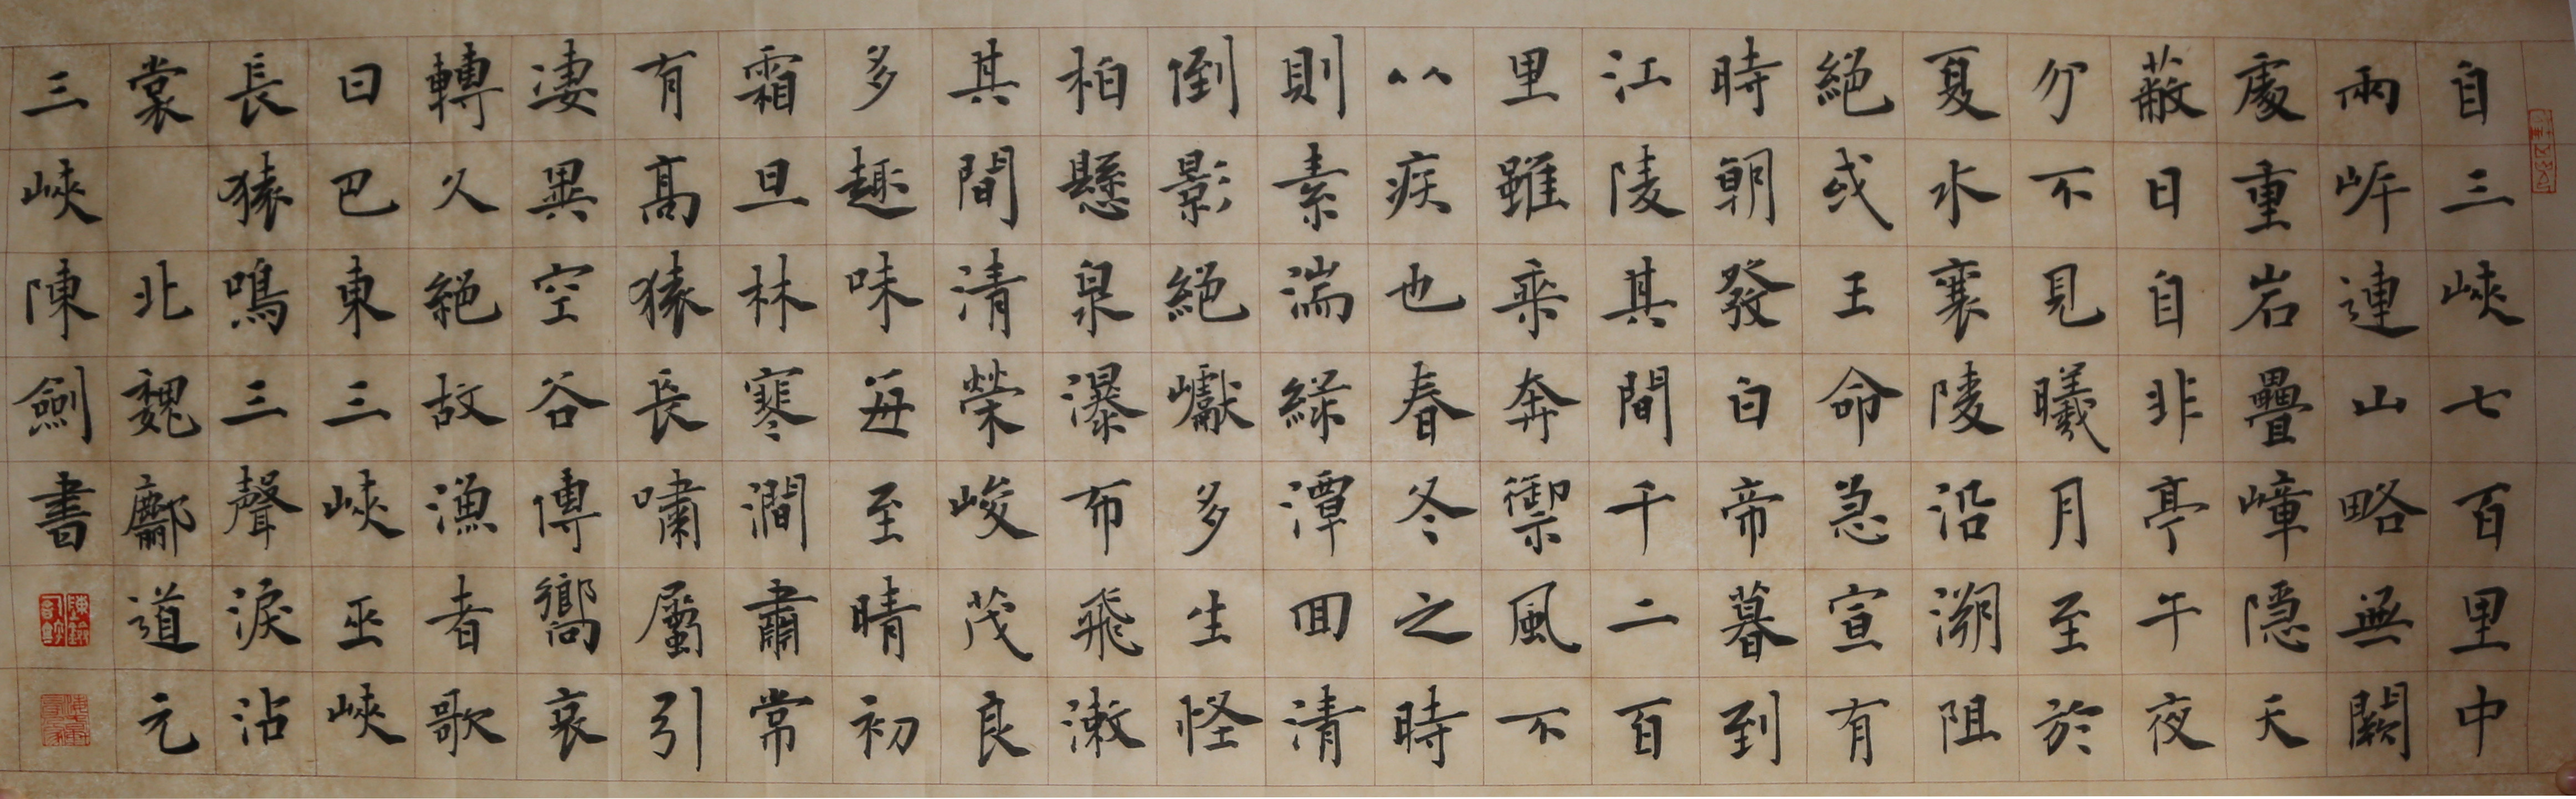 自三峽七百里中
兩岸連山略無闕
處重岩疊嶂隱天
蔽日自非亭午夜
分不見曦月至於
夏水襄陵沿溯阻
絕或王命急宣有
時朝發白帝暮到
江陵其間千二百
里雖乘奔禦風不
以疾也春冬之時
則素湍綠潭回清
倒影絕巘多生怪
柏懸泉瀑布飛漱
其間清榮峻茂良
多趣味每至晴初
霜旦林寒澗肅常
有高猿長嘯屬引
淒異空谷傳嚮哀
轉久絕故漁者歌
曰巴東三峽巫峽
長猿鳴三聲淚沾
裳 北魏酈道元
三峽陳劍書